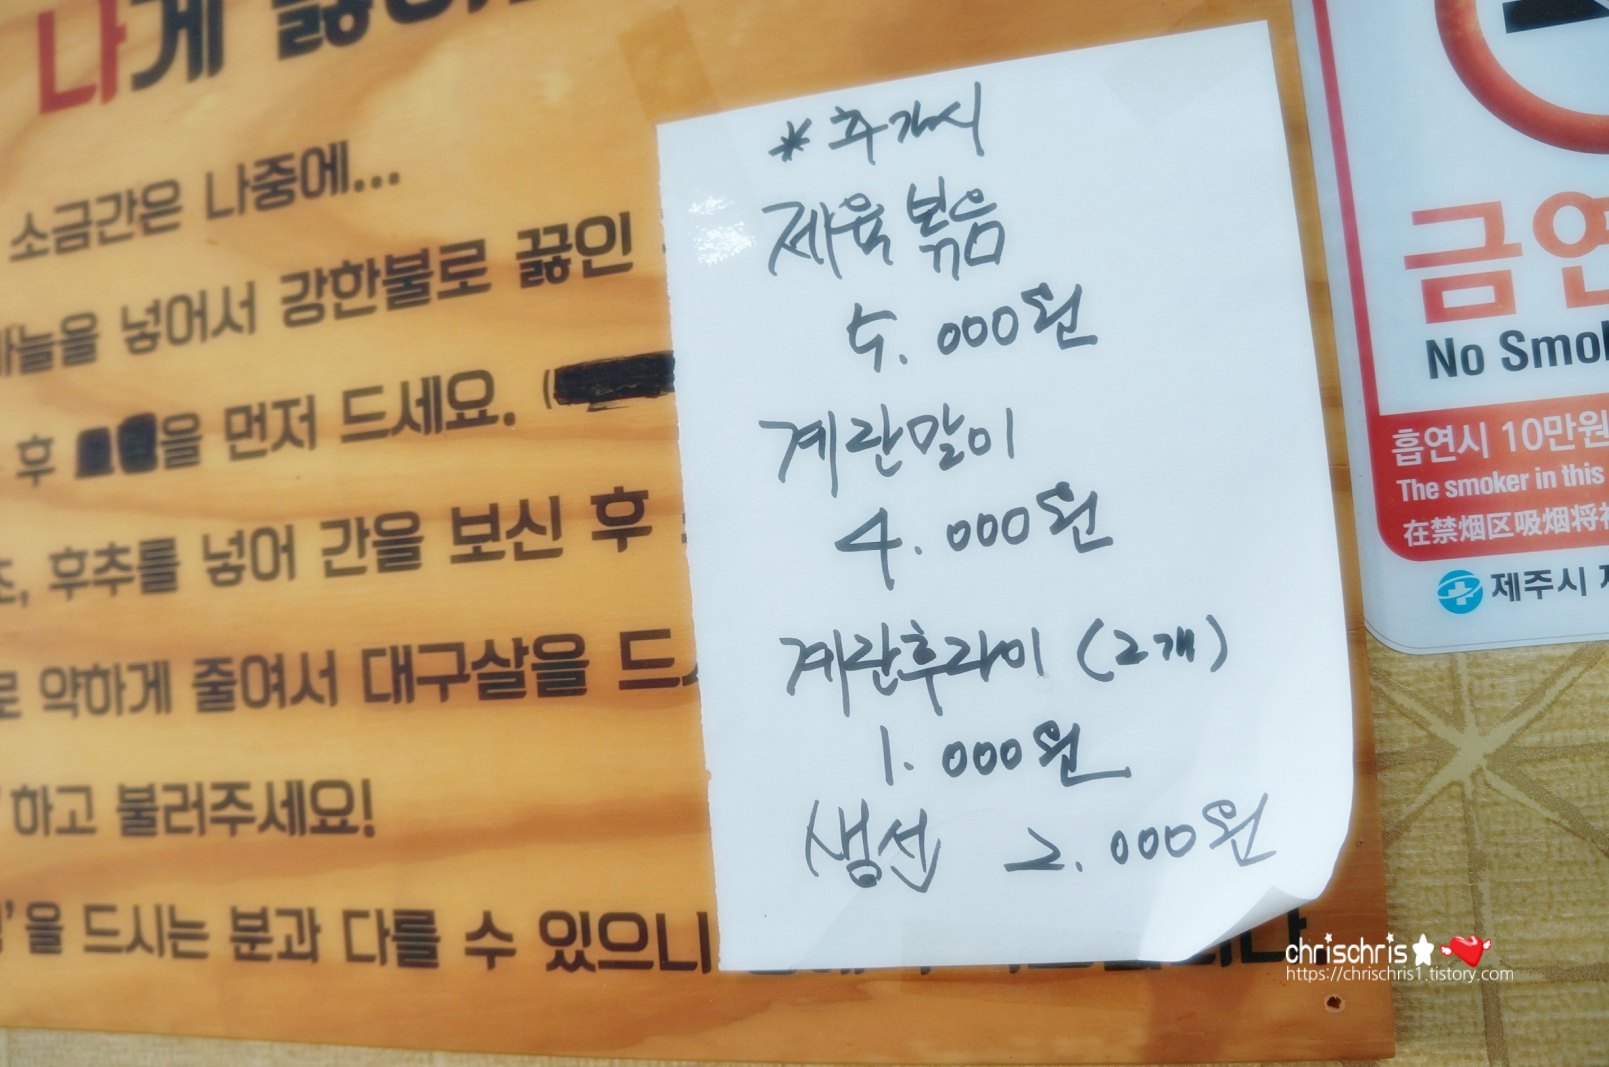 나게
소금간은 나중에...
마늘을 넣어서 강한불로 끓인
후 을 먼저 드세요. (
후추를 넣어 간을 보신 후
로 약하게 줄여서 대구살을 드
하고 불러주세요!
을 드시는 분과 다를 수 있으니
* 추가시
제육볶음
5.000원
계란말이
4.000원
계란후라이 (2개)
1.000원
생선 2.000원
금연
No Smo
흡연시 10만원
The smoker in this
在禁烟区吸烟将
제주시
chrischris
https://chrischris1.tistory.com